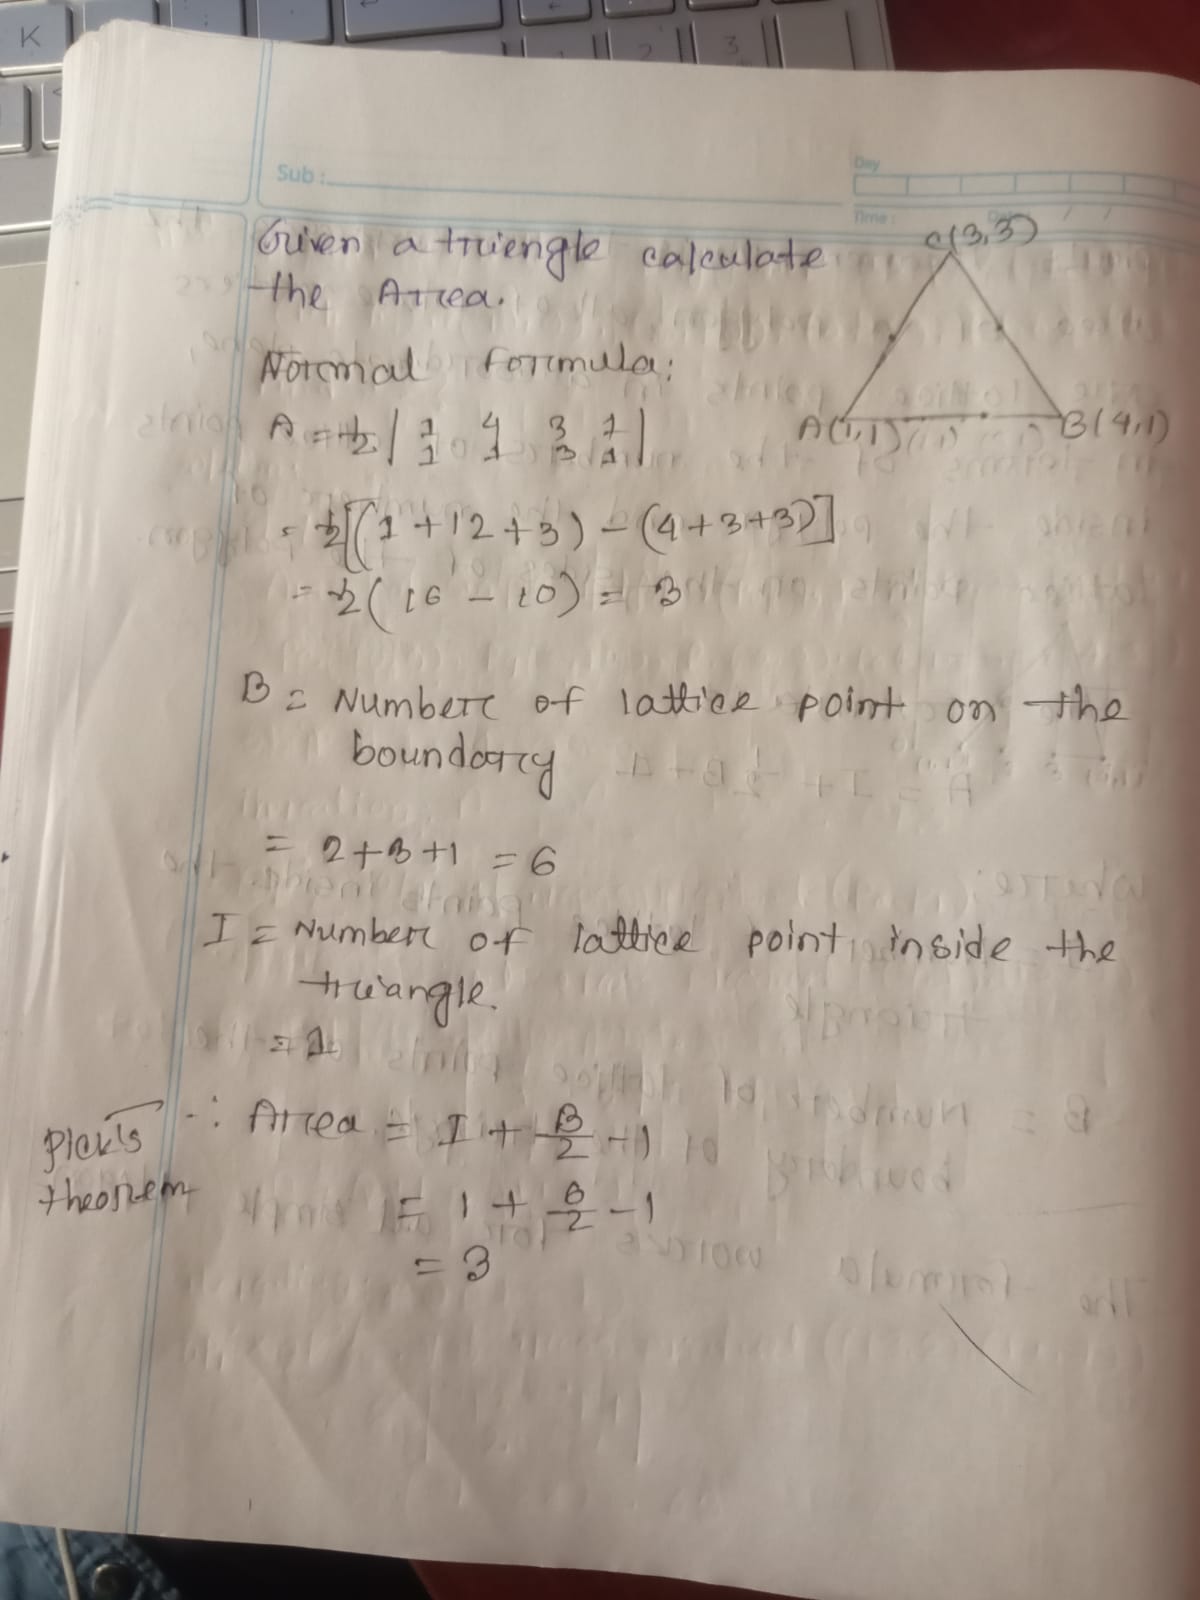 K
1 2 3
Sub :
Day
Time :
Given a triengle calculate
the Area.
C(3,3)
A(1,1)
B(4,1)
Normal Formula:
A = 1/2 | 1 4 3 1 |
1 1 3 1
= 1/2[(1 + 12 + 3) - (4 + 3 + 3)]
= 1/2 ( 16 - 10) = 3
B = Number of lattice point on the
boundary
= 2+3+1 = 6
I = Number of lattice point inside the
triangle.
= 1
Pick's
theorem
∴ Area = I + B/2 - 1
= 1 + 6/2 - 1
= 3